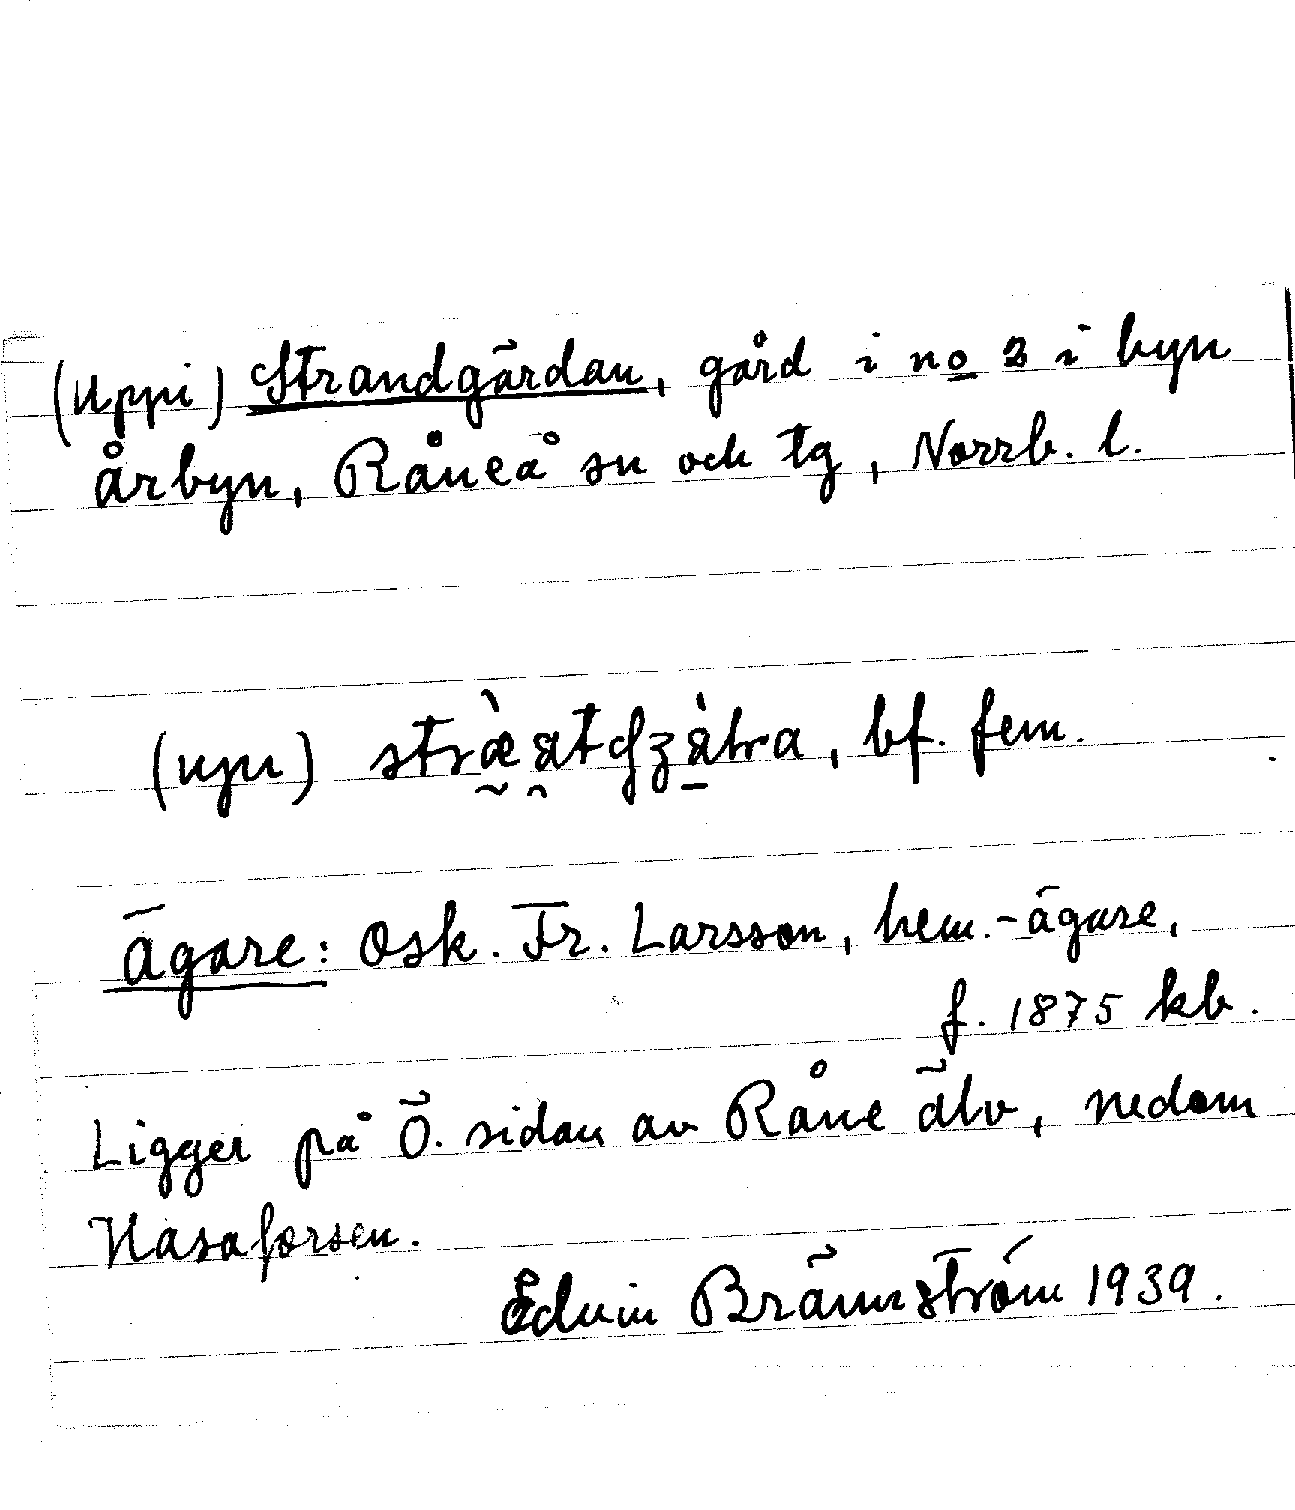 (Uppi) Strandgärdan, gård i no 2 i byn
Årbyn, Råneå sn och tg, Norrb. l.
bf. fem.
Ägare: Osk. Fr. Larsson, hem.-ägare,
f. 1875 kb.
Ligger på Ö. sidan av Råne älv, nedom
Edvin Brännström 1939.